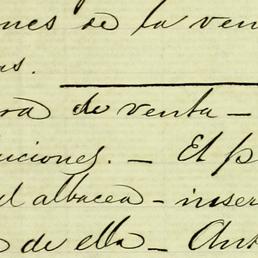 nes de la ven
as.
ra de venta —
uciones. — El p
el albacea — inser
de ella — Ant